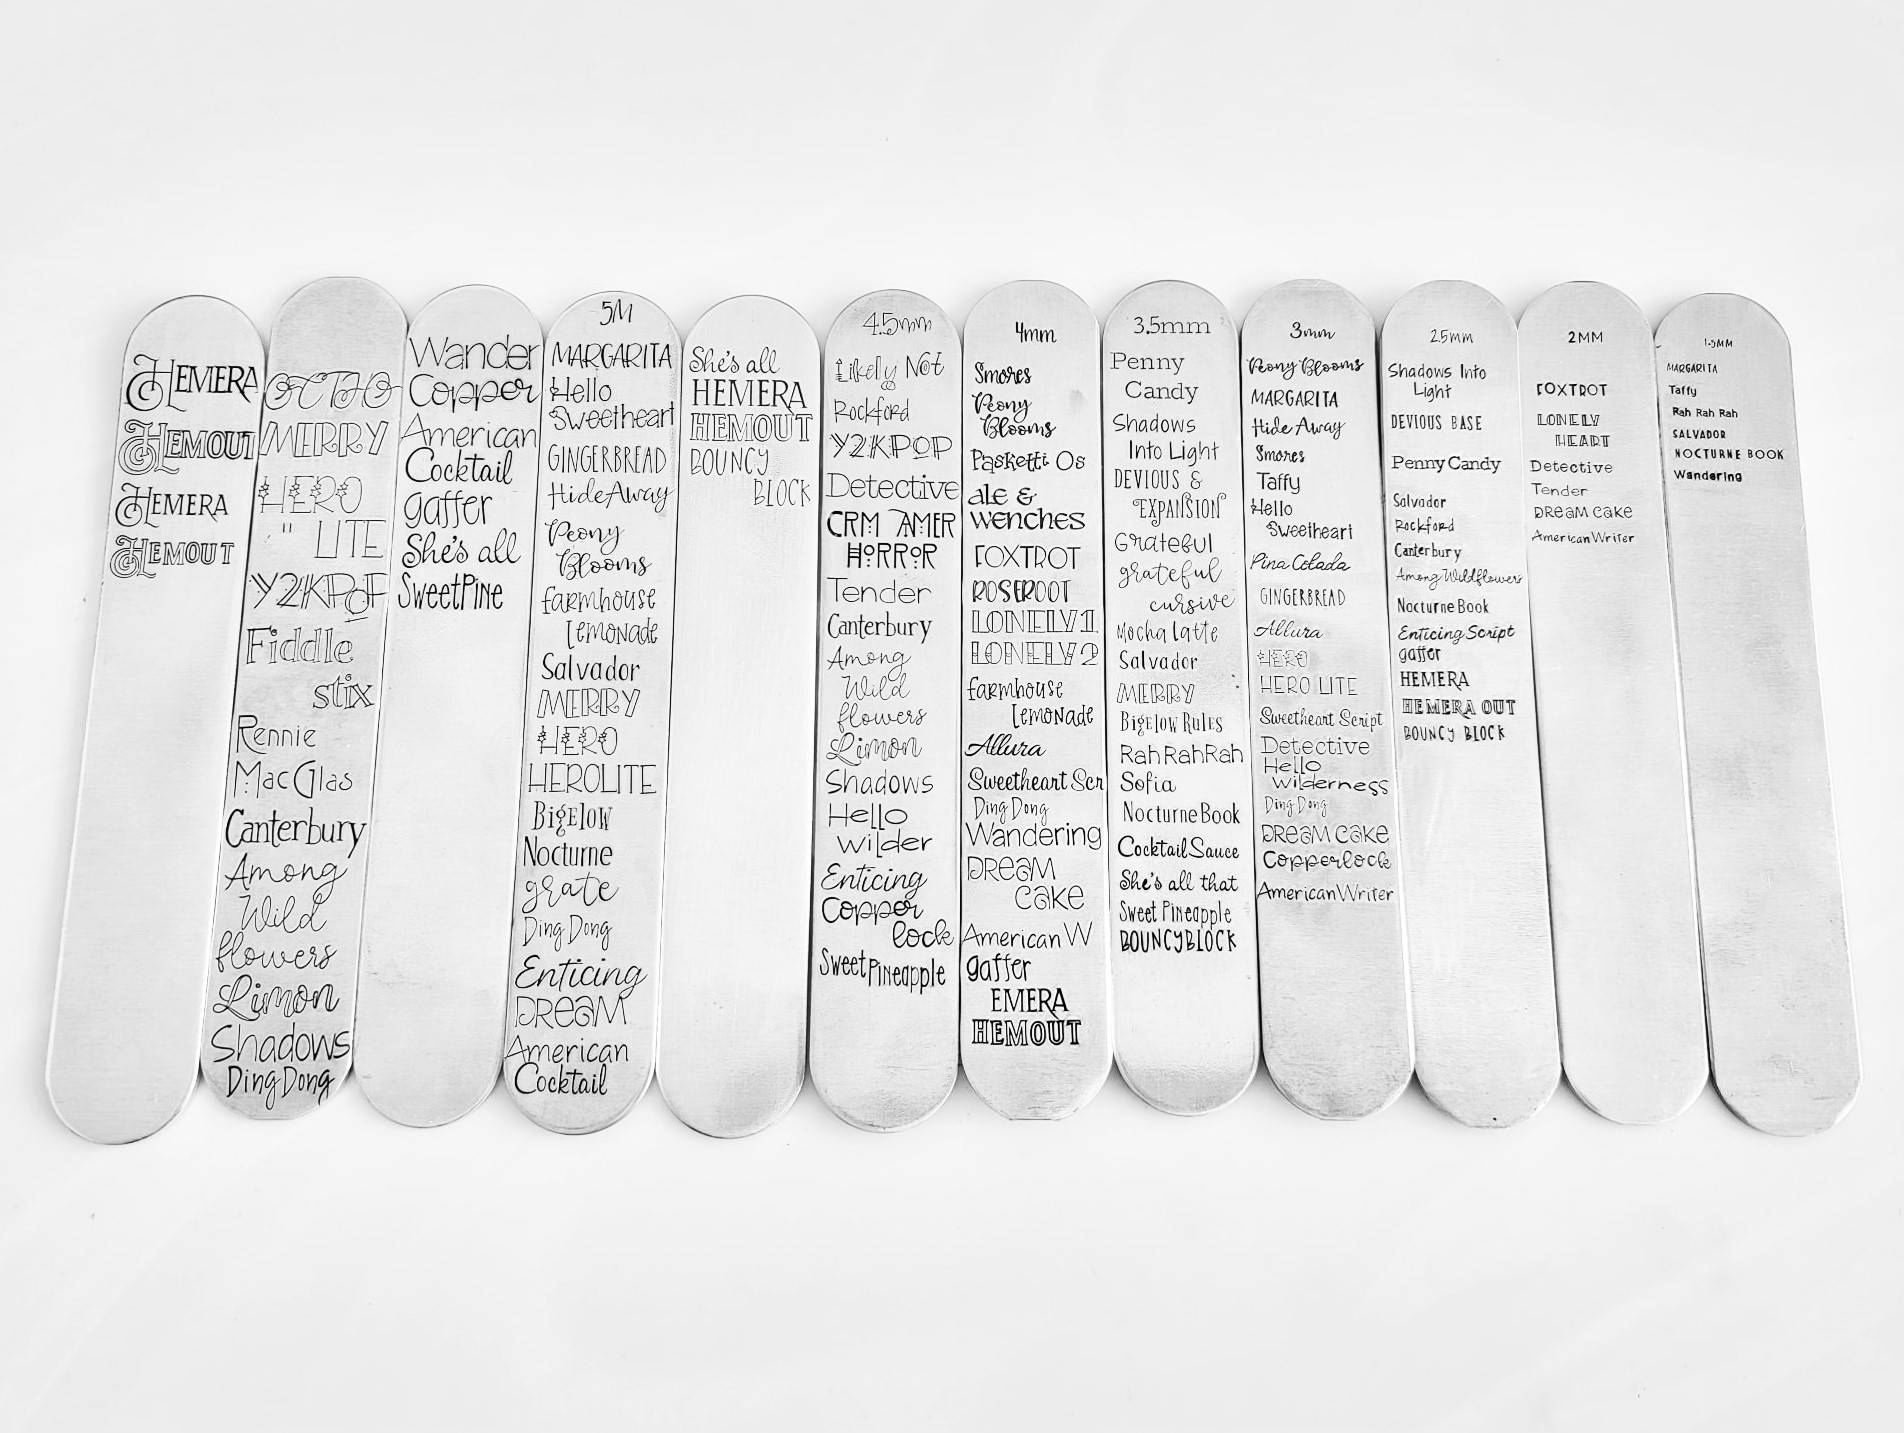 HEMERA
HEMOUT
HEMERA
HEMOUT
OCTHO
MERRY
HERO
" LITE
Y2KPOP
Fiddle
stix
Rennie
MacGlas
Canterbury
Among
Wild
flowers
Limon
Shadows
Ding Dong
Wander
Copper
American
Cocktail
gaffer
She's all
SweetPine
5M
MARGARITA
Hello
Sweetheart
GINGERBREAD
HideAway
Peony
Blooms
farmhouse
Lemonade
Salvador
MERRY
HERO
HEROLITE
Bigelow
Nocturne
grate
Ding Dong
Enticing
DREAM
American
Cocktail
She's all
HEMERA
HEMOUT
BOUNCY
BLOCK
4.5mm
Likely Not
Rockford
Y2KPOP
Detective
CRM AMER
HORROR
Tender
Canterbury
Among
Wild
flowers
Limon
Shadows
Hello
wilder
Enticing
Copper
lock
Sweet Pineapple
4mm
Smores
Peony
Blooms
Pasketti Os
ale &
wenches
FOXTROT
ROSEROOT
LONELY 1
LONELY 2
farmhouse
Lemonade
Allura
Sweetheart Scr
Ding Dong
Wandering
DREAM
Cake
American W
gaffer
EMERA
HEMOUT
3.5mm
Penny
Candy
Shadows
Into Light
DEVIOUS &
EXPANSION
Grateful
grateful
cursive
Mocha Latte
Salvador
MERRY
Bigelow Rules
Rah Rah Rah
Sofia
Nocturne Book
Cocktail Sauce
She's all that
Sweet Pineapple
BOUNCYBLOCK
3mm
Peony Blooms
MARGARITA
Hide Away
Smores
Taffy
Hello
Sweetheart
Pina Colada
GINGERBREAD
Allura
HERO
HERO LITE
Sweetheart Script
Detective
Hello
wilderness
Ding Dong
DREAM CAKE
Copperlock
American Writer
2.5mm
Shadows Into
Light
DEVIOUS BASE
Penny Candy
Salvador
Rockford
Canterbury
Among Wildflowers
Nocturne Book
Enticing Script
gaffer
HEMERA
HEMERA OUT
BOUNCY BLOCK
2MM
FOXTROT
LONELY
HEART
Detective
Tender
DREAM CAKE
American Writer
1.5MM
MARGARITA
Taffy
Rah Rah Rah
SALVADOR
NOCTURNE BOOK
Wandering